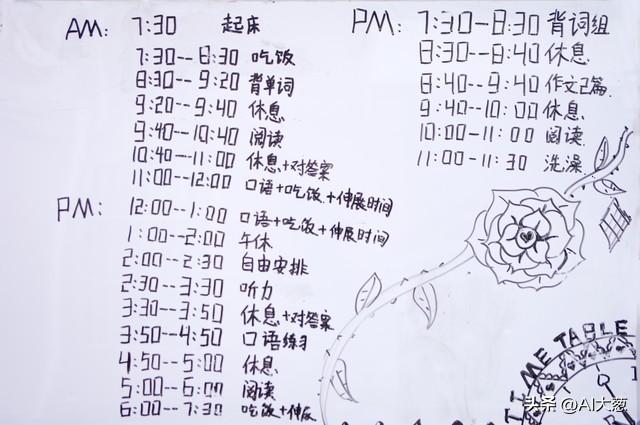 AM: 7:30 起床
7:30--8:30 吃饭
8:30--9:20 背单词
9:20--9:40 休息
9:40--10:40 阅读
10:40--11:00 休息+对答案
11:00--12:00 口语+吃饭+伸展时间
PM: 12:00--1:00 口语+吃饭+伸展时间
1:00--2:00 午休
2:00--2:30 自由安排
2:30--3:30 听力
3:30--3:50 休息+对答案
3:50--4:50 口语练习
4:50--5:00 休息
5:00--6:00 阅读
6:00--7:30 吃饭+伸展
PM: 7:30--8:30 背词组
8:30--8:40 休息
8:40--9:40 作文2篇
9:40--10:00 休息
10:00--11:00 阅读
11:00--11:30 洗澡
TIME TABLE
头条 @AI大葱